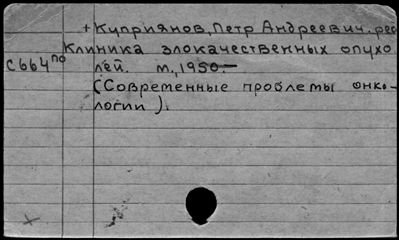 + Куприянов, Петр Андреевич, ред
Клиника злокачественных опухо
С664по лей. М., 1950.—
(Современные проблемы онко-
логии).